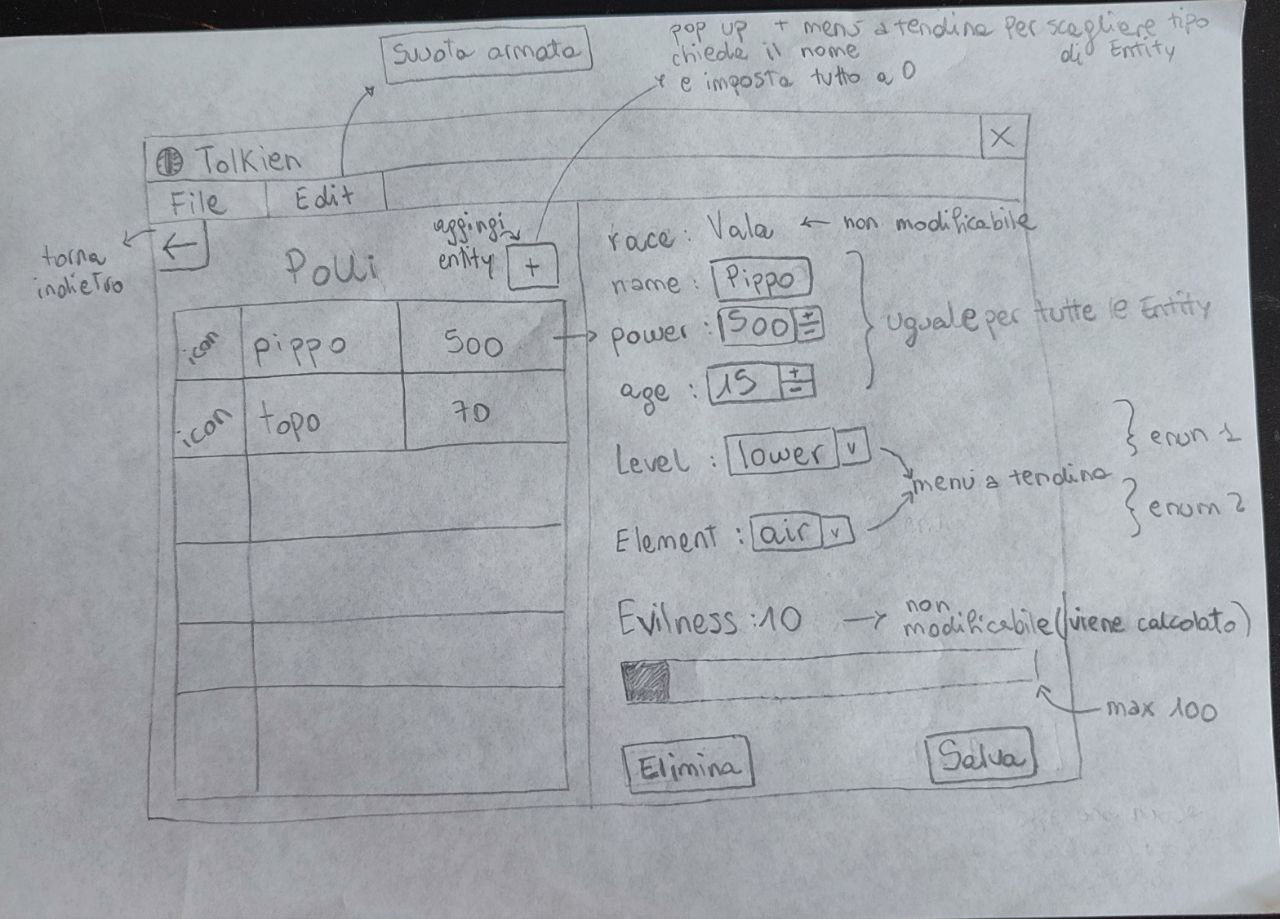 Svuota armata
pop up + menù a tendina per scegliere tipo
chiede il nome di Entity
e imposta tutto a 0
Tolkien
X
File Edit
torna
indietro
←
Polli
aggingi
entity
+
icon pippo 500
icon topo 70
race : Vala ← non modificabile
name : Pippo
power : 500 + -
age : 15 + -
uguale per tutte le Entity
Level : lower v
Element : air v
menù a tendina
enum 1
enum 2
Evilness : 10 → non
modificabile (viene calcolato)
max 100
Elimina
Salva